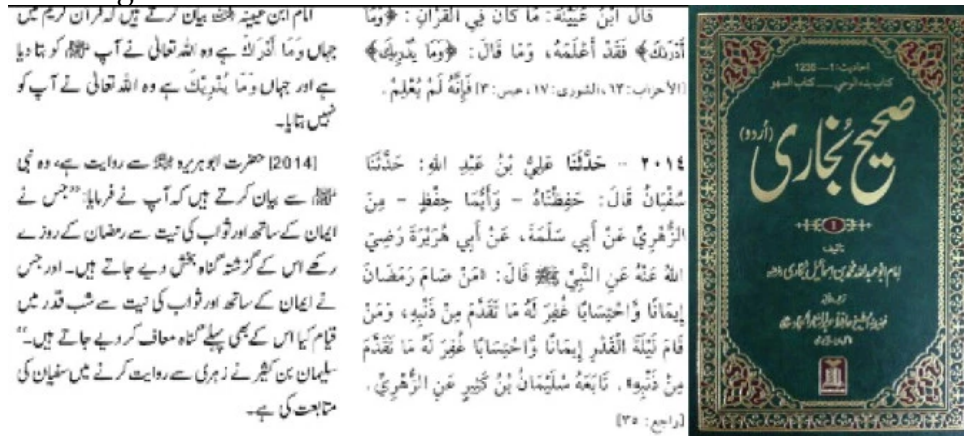 قَالَ ابْنُ عُيَيْنَةَ: مَا كَانَ فِي الْقُرْآنِ: ﴿وَمَا
أَدْرَىٰكَ﴾ فَقَدْ أَعْلَمَهُ، وَمَا قَالَ: ﴿وَمَا يُدْرِيكَ﴾
[الأحزاب: ٦٣، الشورى: ١٧، عبس: ٣] فَإِنَّهُ لَمْ يُعْلِمْ.
٢٠١٤ - حَدَّثَنَا عَلِيُّ بْنُ عَبْدِ اللهِ: حَدَّثَنَا
سُفْيَانُ قَالَ: حَفِظْنَاهُ - وَأَيُّمَا حِفْظٍ - مِنَ
الزُّهْرِيِّ عَنْ أَبِي سَلَمَةَ، عَنْ أَبِي هُرَيْرَةَ رَضِيَ
اللهُ عَنْهُ عَنِ النَّبِيِّ ﷺ قَالَ: «مَنْ صَامَ رَمَضَانَ
إِيمَانًا وَّاحْتِسَابًا غُفِرَ لَهُ مَا تَقَدَّمَ مِنْ ذَنْبِهِ، وَمَنْ
قَامَ لَيْلَةَ الْقَدْرِ إِيمَانًا وَّاحْتِسَابًا غُفِرَ لَهُ مَا تَقَدَّمَ
مِنْ ذَنْبِهِ». تَابَعَهُ سُلَيْمَانُ بْنُ كَثِيرٍ عَنِ الزُّهْرِيِّ.
[راجع: ٣٥]
امام ابن عیینہ بیان کرتے ہیں کہ قرآن کریم میں
جہاں وَمَا أَدْرَاكَ ہے وہ اللہ تعالیٰ نے آپ ﷺ کو بتا دیا
ہے اور جہاں وَمَا يُدْرِيكَ ہے وہ اللہ تعالیٰ نے آپ کو
نہیں بتایا۔
[2014] حضرت ابوہریرہ ؓ سے روایت ہے، وہ نبی
ﷺ سے بیان کرتے ہیں کہ آپ نے فرمایا: ”جس نے
ایمان کے ساتھ اور ثواب کی نیت سے رمضان کے روزے
رکھے اس کے گزشتہ گناہ بخش دیے جاتے ہیں۔ اور جس
نے ایمان کے ساتھ اور ثواب کی نیت سے شب قدر میں
قیام کیا اس کے بھی پہلے گناہ معاف کر دیے جاتے ہیں۔“
سلیمان بن کثیر نے زہری سے روایت کرنے میں سفیان کی
متابعت کی ہے۔
احادیث: 1—1236
کتاب بدء الوحی — کتاب السہو
صحیح بخاری (اُردو)
1
تالیف
امام ابو عبداللہ محمد بن اسماعیل بخاری